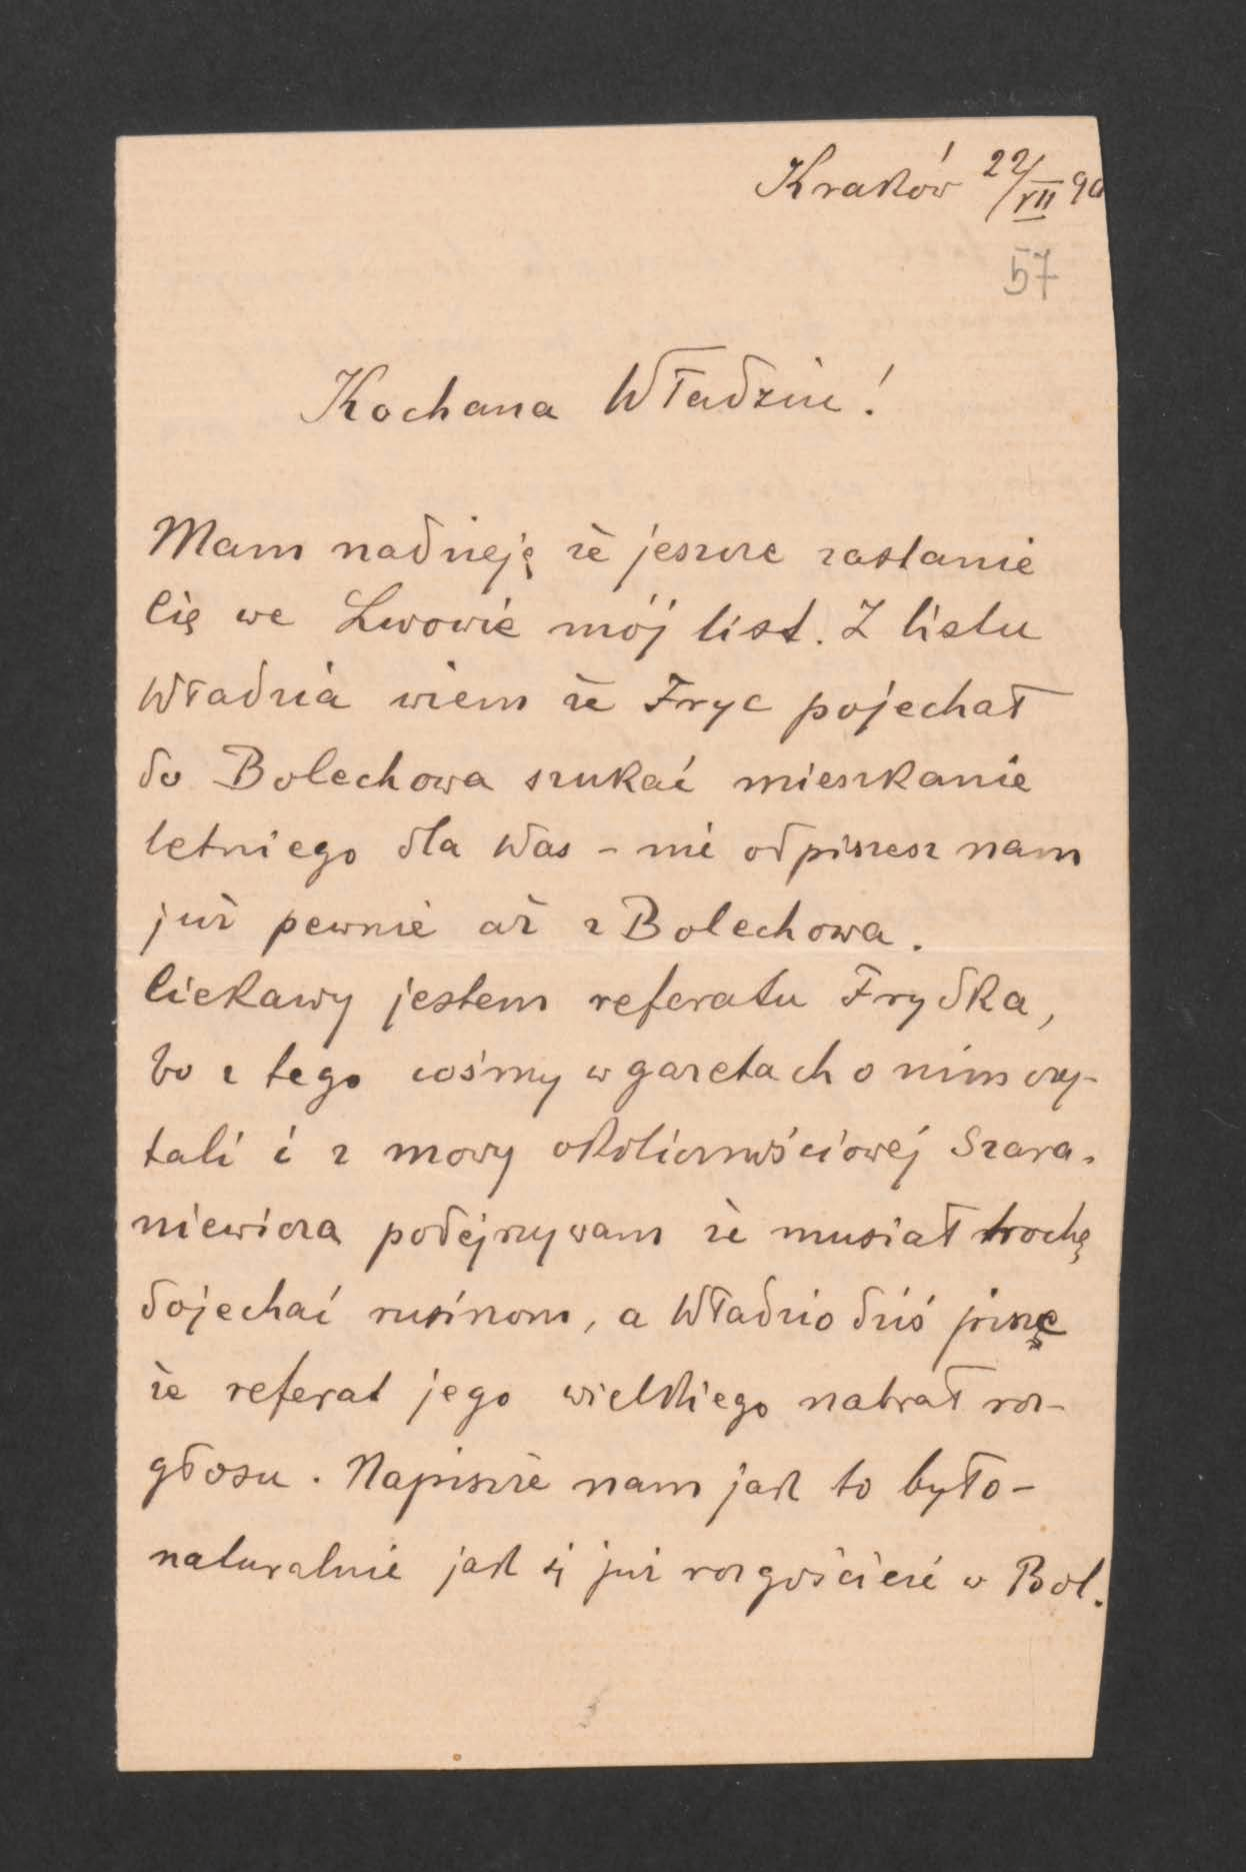 Kraków 22/VII 90
57
Kochana Władziu!
Mam nadzieję że jeszcze zastanie
Cię we Lwowie mój list. Z listu
Władzia wiem że Fryc pojechał
do Bolechowa szukać mieszkanie
letniego dla Was – nie odpiszesz nam
już pewnie aż z Bolechowa.
Ciekawy jestem referatu Frydka,
bo z tego cośmy w gazetach o nim czy-
tali i z mowy okolicznościowej Szara-
niewicza podejrzywam że musiał trochę
dojechać rusinom, a Władzio dziś pisze
że referat jego wielkiego nabrał roz-
głosu. Napiszże nam jak to było –
naturalnie jak się już rozgościcie w Bol.